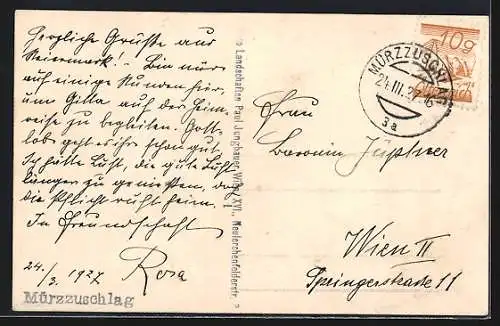 Herzliche Grüße aus
Steiermark! – Bin nur
auf einige Stunden hier,
um Gitta auf der Heim-
reise zu begleiten. Gott-
lob geht es ihr schon gut.
Ich hätte Lust, die gute Luft
länger zu genießen, doch
die Pflicht ruft heim.
In Freundschaft
24./3. 1927 Rosa
Mürzzuschlag
Landschaften Paul Jungbauer, Wien XVI., Neulerchenfelderstr.
10g
MÜRZZUSCHLAG
24.III.
3a
Frau
Baronin Jüptner
Wien II
Springerstrasse 11